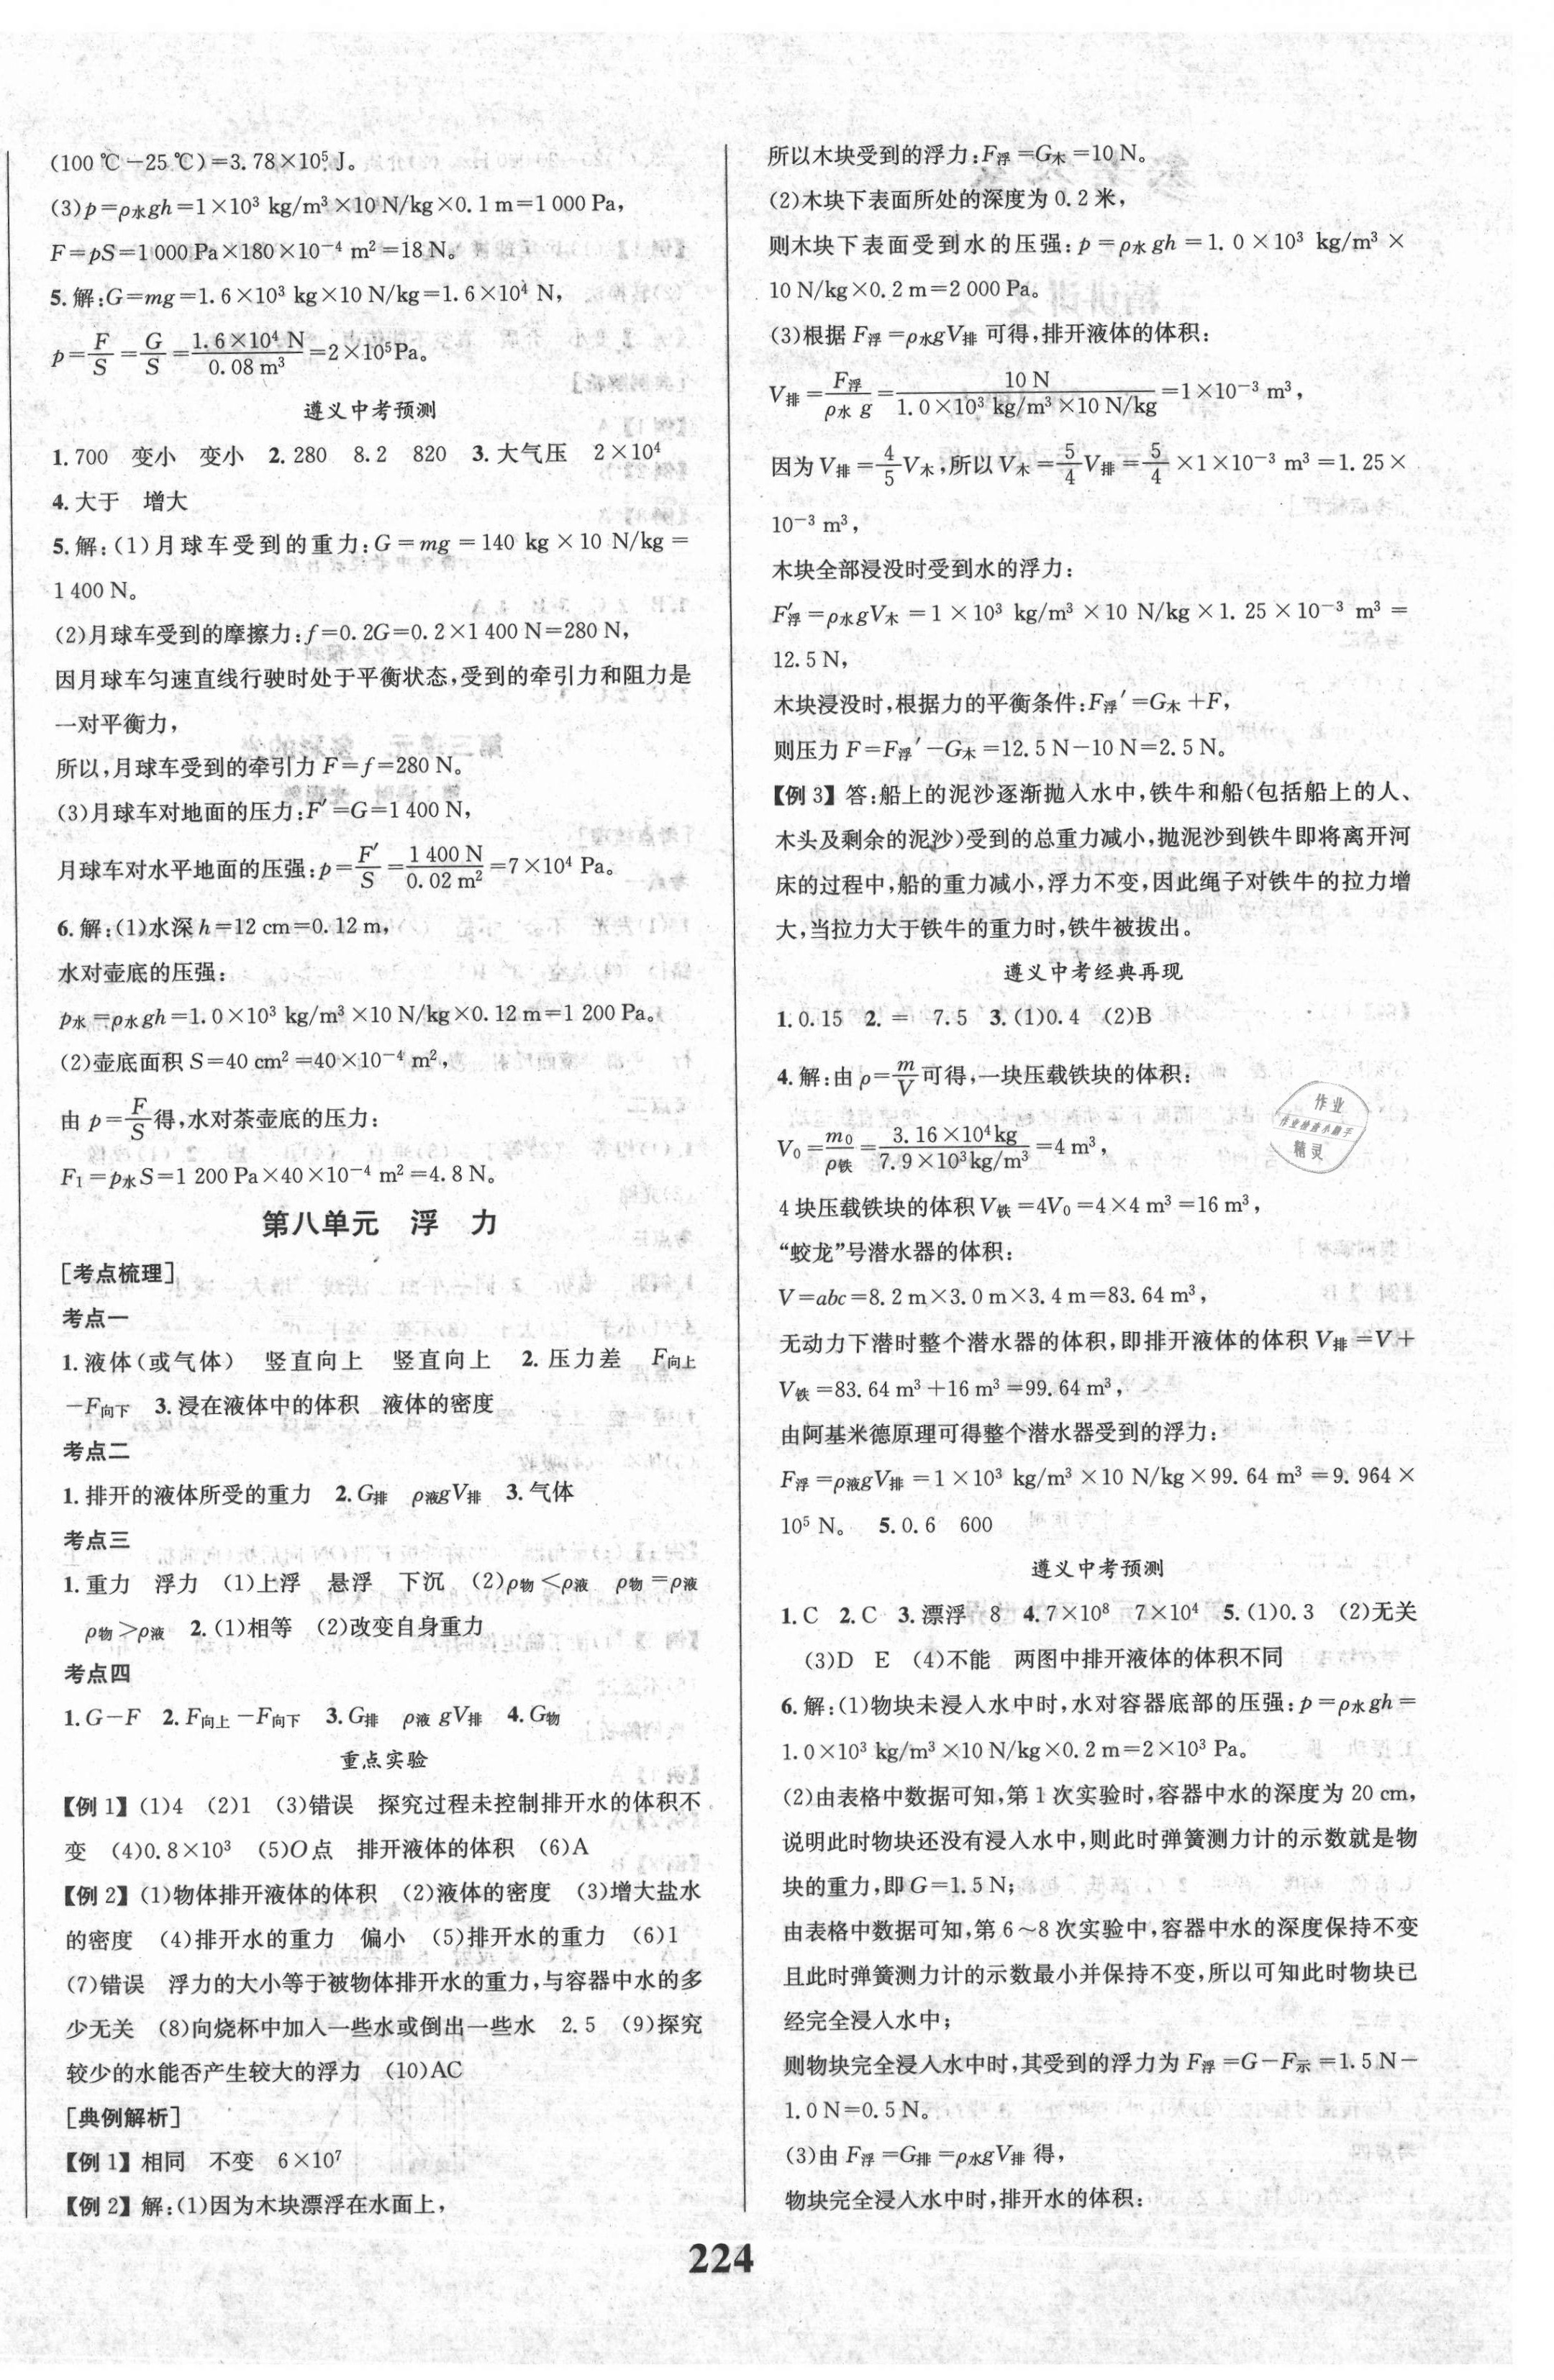 (100 ℃-25 ℃)=3.78×10⁵ J。
(3)p=ρ水gh=1×10³ kg/m³×10 N/kg×0.1 m=1 000 Pa,
F=pS=1 000 Pa×180×10⁻⁴ m²=18 N。
5.解:G=mg=1.6×10³ kg×10 N/kg=1.6×10⁴ N,
p=F/S=G/S=1.6×10⁴ N/0.08 m³=2×10⁵Pa。
遵义中考预测
1.700 变小 变小 2.280 8.2 820 3.大气压 2×10⁴
4.大于 增大
5.解:(1)月球车受到的重力:G=mg=140 kg×10 N/kg=
1 400 N。
(2)月球车受到的摩擦力:f=0.2G=0.2×1 400 N=280 N,
因月球车匀速直线行驶时处于平衡状态,受到的牵引力和阻力是
一对平衡力,
所以,月球车受到的牵引力F=f=280 N。
(3)月球车对地面的压力:F′=G=1 400 N,
月球车对水平地面的压强:p=F′/S=1 400 N/0.02 m²=7×10⁴ Pa。
6.解:(1)水深h=12 cm=0.12 m,
水对壶底的压强:
p水=ρ水gh=1.0×10³ kg/m³×10 N/kg×0.12 m=1 200 Pa。
(2)壶底面积S=40 cm²=40×10⁻⁴ m²,
由p=F/S得,水对茶壶底的压力:
F₁=p水S=1 200 Pa×40×10⁻⁴ m²=4.8 N。
第八单元 浮 力
[考点梳理]
考点一
1.液体(或气体) 竖直向上 竖直向上 2.压力差 F向上
-F向下 3.浸在液体中的体积 液体的密度
考点二
1.排开的液体所受的重力 2.G排 ρ液gV排 3.气体
考点三
1.重力 浮力 (1)上浮 悬浮 下沉 (2)ρ物<ρ液 ρ物=ρ液
ρ物>ρ液 2.(1)相等 (2)改变自身重力
考点四
1.G-F 2.F向上-F向下 3.G排 ρ液gV排 4.G物
重点实验
【例1】(1)4 (2)1 (3)错误 探究过程未控制排开水的体积不
变 (4)0.8×10³ (5)O点 排开液体的体积 (6)A
【例2】(1)物体排开液体的体积 (2)液体的密度 (3)增大盐水
的密度 (4)排开水的重力 偏小 (5)排开水的重力 (6)1
(7)错误 浮力的大小等于被物体排开水的重力,与容器中水的多
少无关 (8)向烧杯中加入一些水或倒出一些水 2.5 (9)探究
较少的水能否产生较大的浮力 (10)AC
[典例解析]
【例1】相同 不变 6×10⁷
【例2】解:(1)因为木块漂浮在水面上,
所以木块受到的浮力:F浮=G木=10 N。
(2)木块下表面所处的深度为0.2米,
则木块下表面受到水的压强:p=ρ水gh=1.0×10³ kg/m³×
10 N/kg×0.2 m=2 000 Pa。
(3)根据F浮=ρ水gV排可得,排开液体的体积:
V排=F浮/ρ水g=10 N/1.0×10³ kg/m³×10 N/kg=1×10⁻³ m³,
因为V排=4/5V木,所以V木=5/4V排=5/4×1×10⁻³ m³=1.25×
10⁻³ m³,
木块全部浸没时受到水的浮力:
F′浮=ρ水gV木=1×10³ kg/m³×10 N/kg×1.25×10⁻³ m³=
12.5 N,
木块浸没时,根据力的平衡条件:F浮′=G木+F,
则压力F=F浮′-G木=12.5 N-10 N=2.5 N。
【例3】答:船上的泥沙逐渐抛入水中,铁牛和船(包括船上的人、
木头及剩余的泥沙)受到的总重力减小,抛泥沙到铁牛即将离开河
床的过程中,船的重力减小,浮力不变,因此绳子对铁牛的拉力增
大,当拉力大于铁牛的重力时,铁牛被拔出。
遵义中考经典再现
1.0.15 2.= 7.5 3.(1)0.4 (2)B
4.解:由ρ=m/V可得,一块压载铁块的体积:
V₀=m₀/ρ铁=3.16×10⁴kg/7.9×10³kg/m³=4 m³,
4块压载铁块的体积V铁=4V₀=4×4 m³=16 m³,
“蛟龙”号潜水器的体积:
V=abc=8.2 m×3.0 m×3.4 m=83.64 m³,
无动力下潜时整个潜水器的体积,即排开液体的体积V排=V+
V铁=83.64 m³+16 m³=99.64 m³,
由阿基米德原理可得整个潜水器受到的浮力:
F浮=ρ液gV排=1×10³ kg/m³×10 N/kg×99.64 m³=9.964×
10⁵ N。 5.0.6 600
遵义中考预测
1.C 2.C 3.漂浮 8 4.7×10⁸ 7×10⁴ 5.(1)0.3 (2)无关
(3)D E (4)不能 两图中排开液体的体积不同
6.解:(1)物块未浸入水中时,水对容器底部的压强:p=ρ水gh=
1.0×10³ kg/m³×10 N/kg×0.2 m=2×10³ Pa。
(2)由表格中数据可知,第1次实验时,容器中水的深度为20 cm,
说明此时物块还没有浸入水中,则此时弹簧测力计的示数就是物
块的重力,即G=1.5 N;
由表格中数据可知,第6~8次实验中,容器中水的深度保持不变
且此时弹簧测力计的示数最小并保持不变,所以可知此时物块已
经完全浸入水中;
则物块完全浸入水中时,其受到的浮力为F浮=G-F示=1.5 N-
1.0 N=0.5 N。
(3)由F浮=G排=ρ水gV排得,
物块完全浸入水中时,排开水的体积:
作业
精灵
224